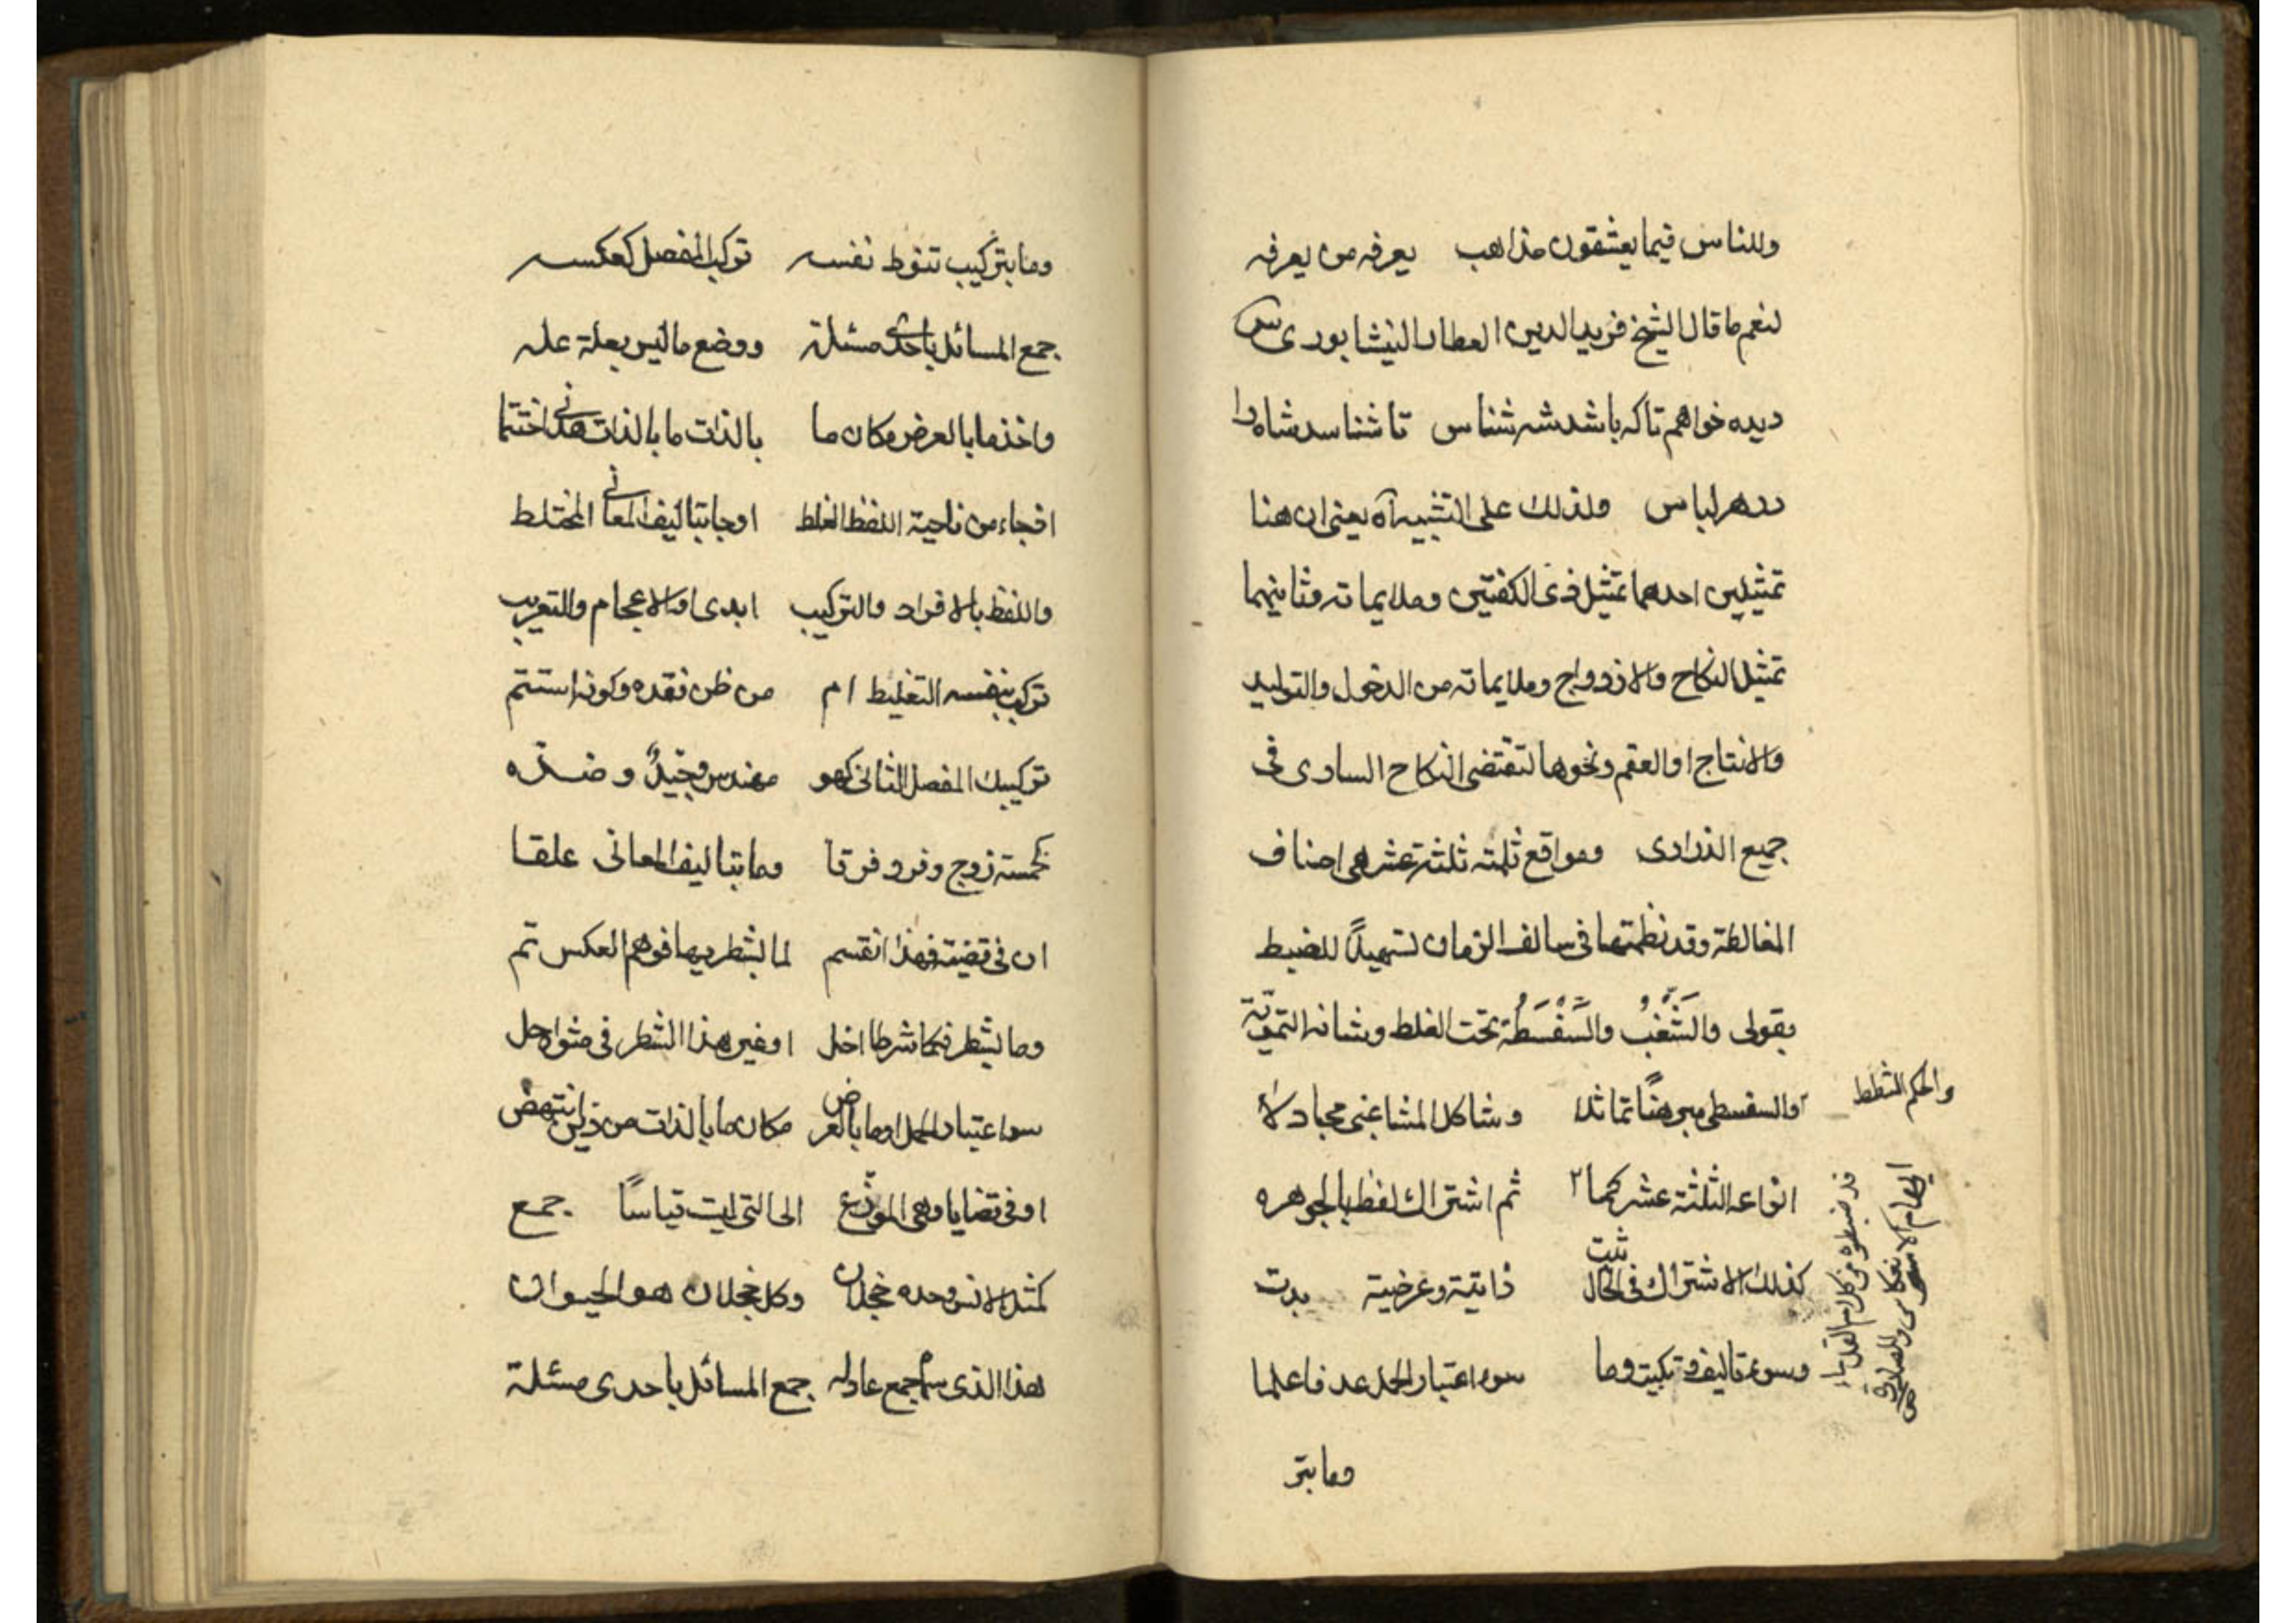 وللناس فيما يعشقون مذاهب يعرفه من يعرفه
لنعم ما قال الشيخ فريد الدين العطار النيشابوري س
ديده خواهم تا كه باشد شه شناس تا شناسد شاه را
در هر لباس ولذلك على التشبيه آه يعنى ان هنا
تمثيلين احدهما تمثيل ذى الكفتين وملايماته وثانيهما
تمثيل النكاح والازدواج وملايماته من الدخول والتوليد
والانتاج او العقم ونحوها لتقتضى النكاح السارى فى
جميع الذرارى ومواقع ثلثه ثلثة عشر هى اصناف
المغالطة وقد نظمتها فى سالف الزمان تسهيلاً للضبط
بقولى والشَّغْبُ والسَّفْسَطَةُ تحت الغلط وشانه التمويّة
والحكم الشطط
والسفسطى مبرهناً تماثلا وشاكل المشاغبى مجادلاً
انواعه الثلثة عشر كما ٢ ثم اشتراك لفظ بالجوهره
كذلك الاشتراك فى الحال ثبت ذاتية وعرضية بدت
وسوء تاليف وتبكيت وما سوء اعتبار الحمل عد فاعلما
قد ضبطوه من كلام القدماء
ايهام الانعكاس والمصادرة
وما بتر
وما بتركيب تنوط نفسه تركب المفصل كعكسه
جمع المسائل باحدى مسئلة ووضع ما ليس بعلة عله
واخذ ما بالعرض مكان ما بالذات ما بالذات هذا اختتما
اذ جاء من ناحية اللفظ الغلط او جا بتاليف المعانى اختلط
واللفظ بالافراد والتركيب ابدى او الاعجام والتعريب
تركيب بنفسه التغليط ام من ظن فقده وكونه استتم
تركيبك المفصل الثانى كهو مهندس وجيدٌ وضده
كخمسة زوج وفرد فرقا وما بتاليف المعانى علقا
ان فى قضية فهذا انقسم لما بشطريها فوهم العكس تم
وما بشطر فكما شرطا اخل او غير هذا الشطر فى مثواحل
سوء اعتبار الحمل او ما بالعرض مكان ما بالذات من ذين انتهض
او فى قضايا وهى الموزّع الى التى ليت قياسًا جمع
كمثل الانس وحده خجلان وكل خجلان هو الحيوان
هذا الذى سم جمع عادله جمع المسائل باحدى مسئلة